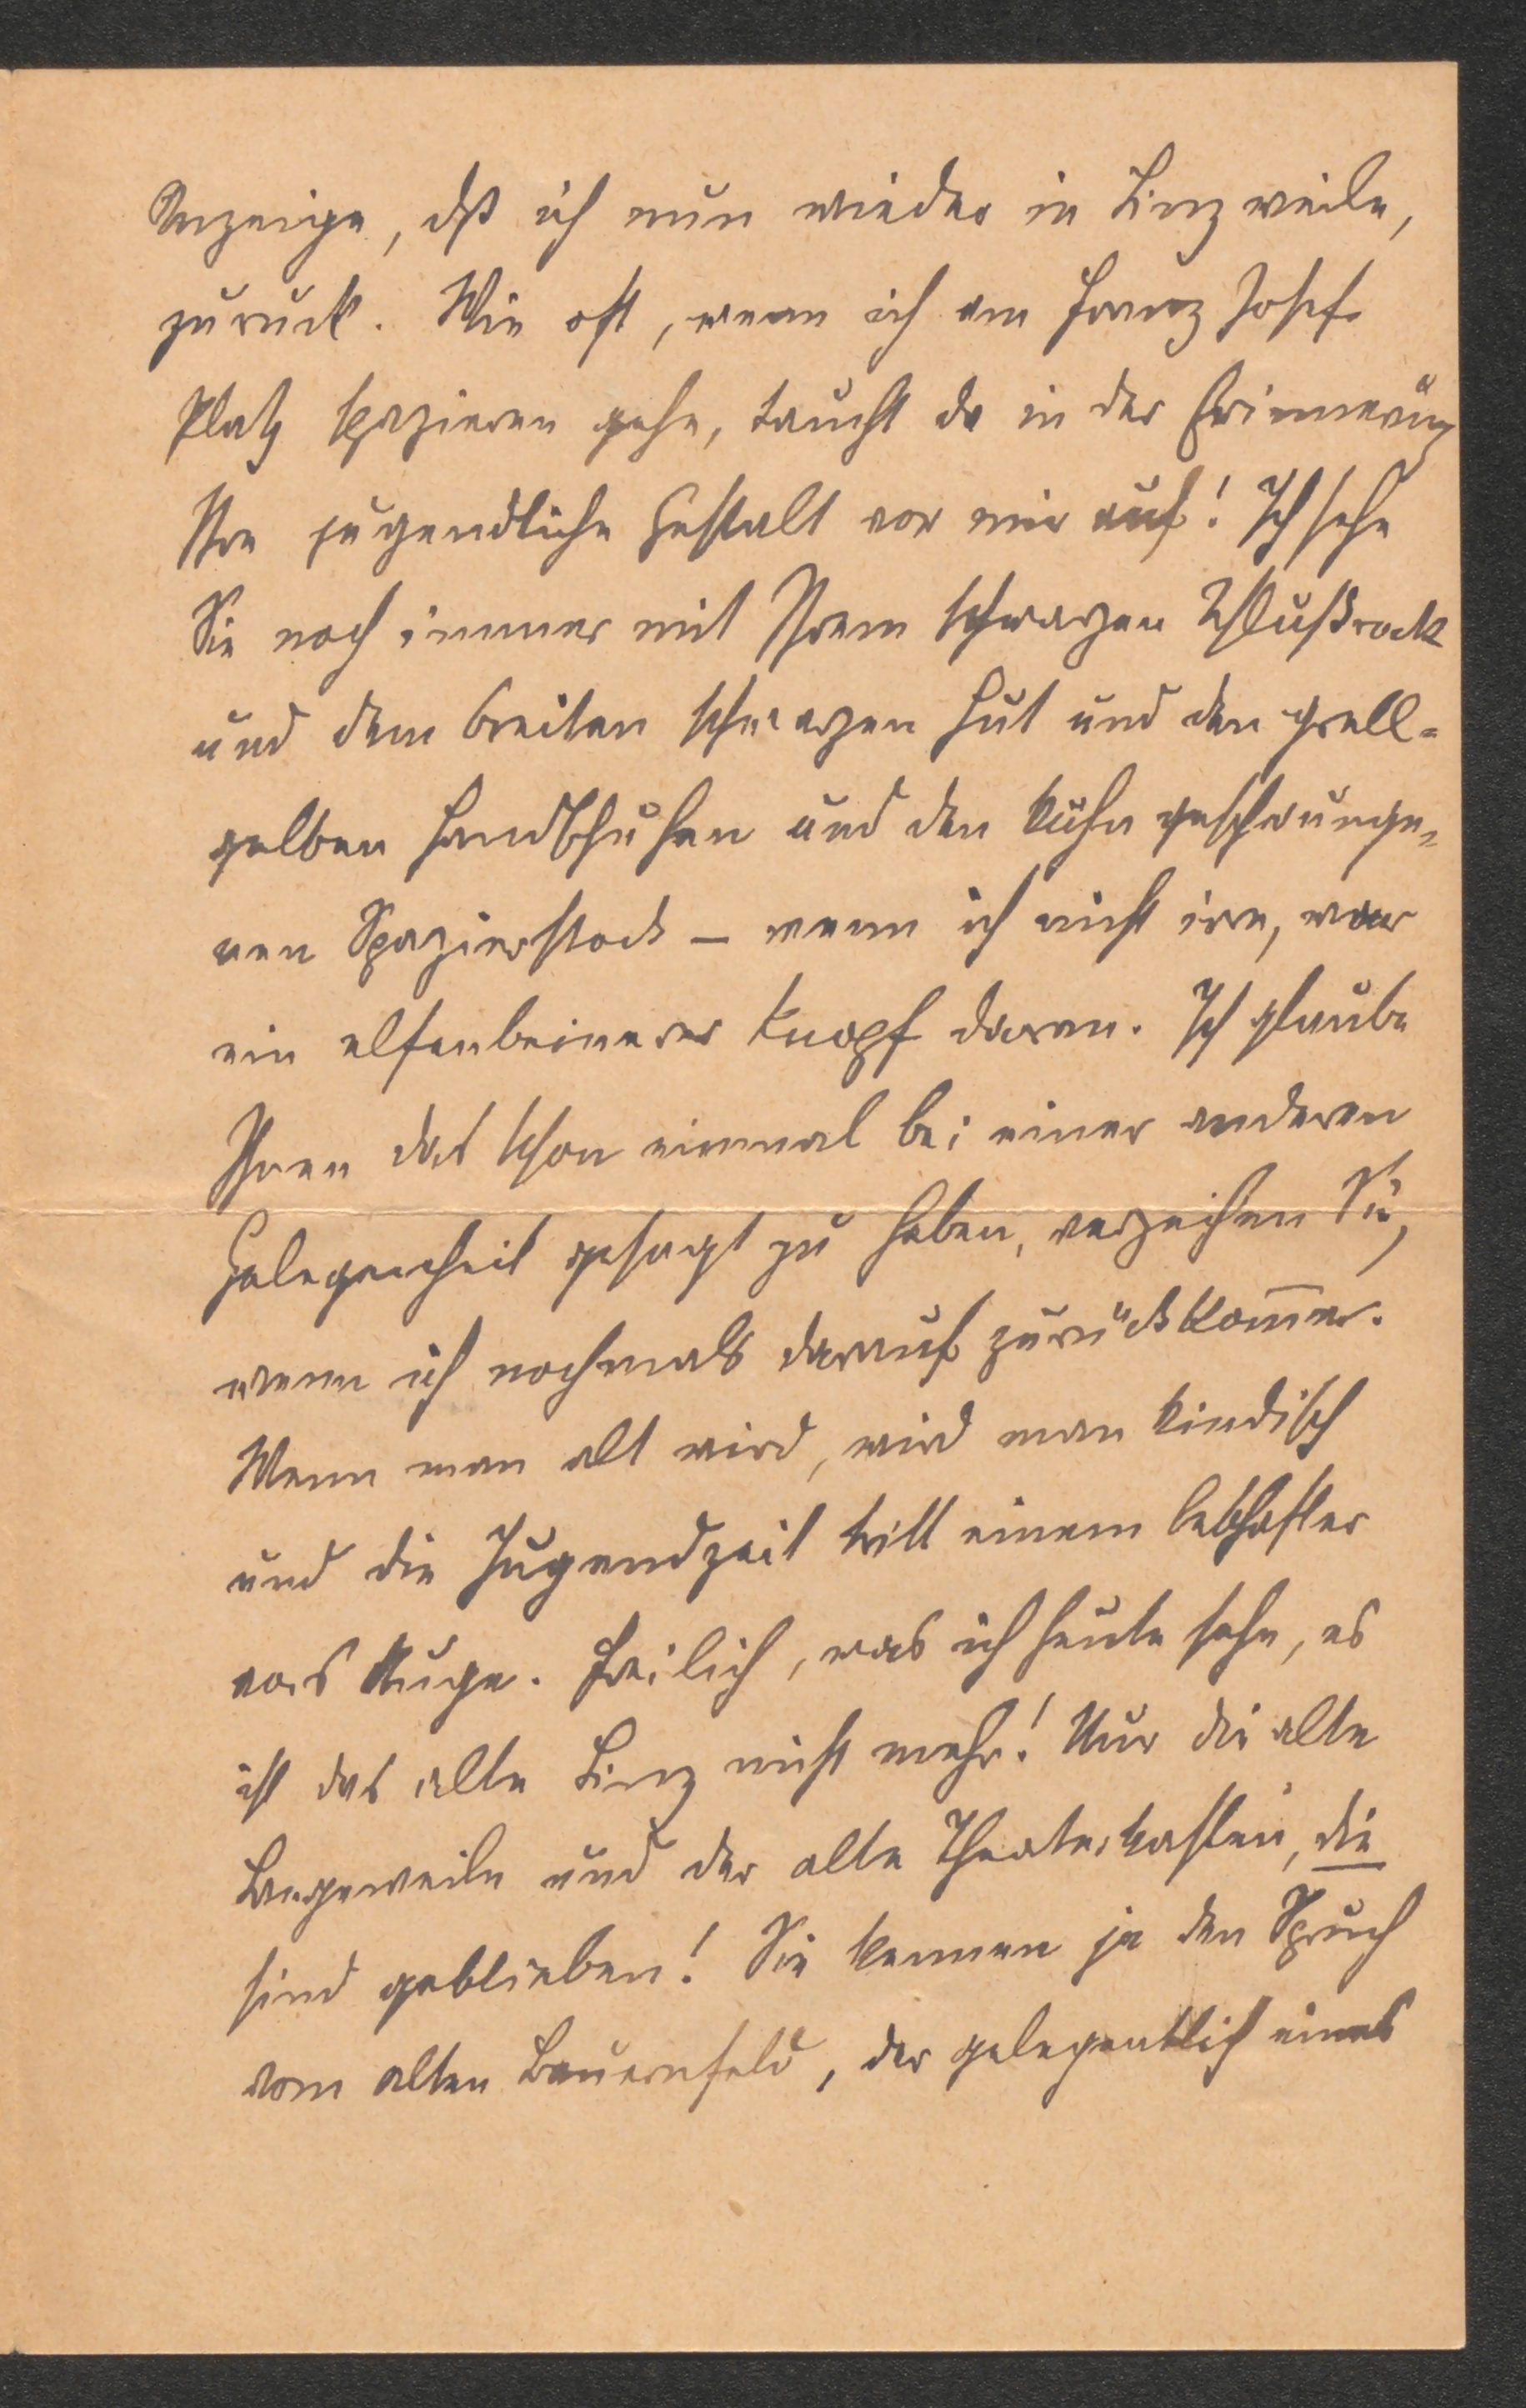 Anzeige, dß ich nun wieder in Linz weile,
zurück. Wie oft, wenn ich am Franz Josef-
Platz spazieren gehe, taucht da in der Erinnerung
Ihre jugendliche Gestalt vor mir auf! Ich sehe
Sie noch immer mit Ihrem schwarzen Schlußrock
und dem breiten schwarzen Hut und den grell-
gelben Handschuhen und den kühn geschwunge-
nen Spazierstock – wenn ich nicht irre, war
ein elfenbeinerner Knopf daran. Ich glaube
Ihnen das schon einmal bei einer anderen
Gelegenheit gesagt zu haben, verzeihen Sie,
wenn ich nochmals darauf zurückkomme.
Wenn man alt wird, wird man kindisch
und die Jugendzeit tritt einem lebhafter
vors Auge. Freilich, was ich heute sehe, es
ist das alte Linz nicht mehr! Nur die alte
Langeweile und der alte Theaterkasten, die
sind geblieben! Sie kennen ja den Spruch
vom alten Bauernfeld, der gelegentlich eines